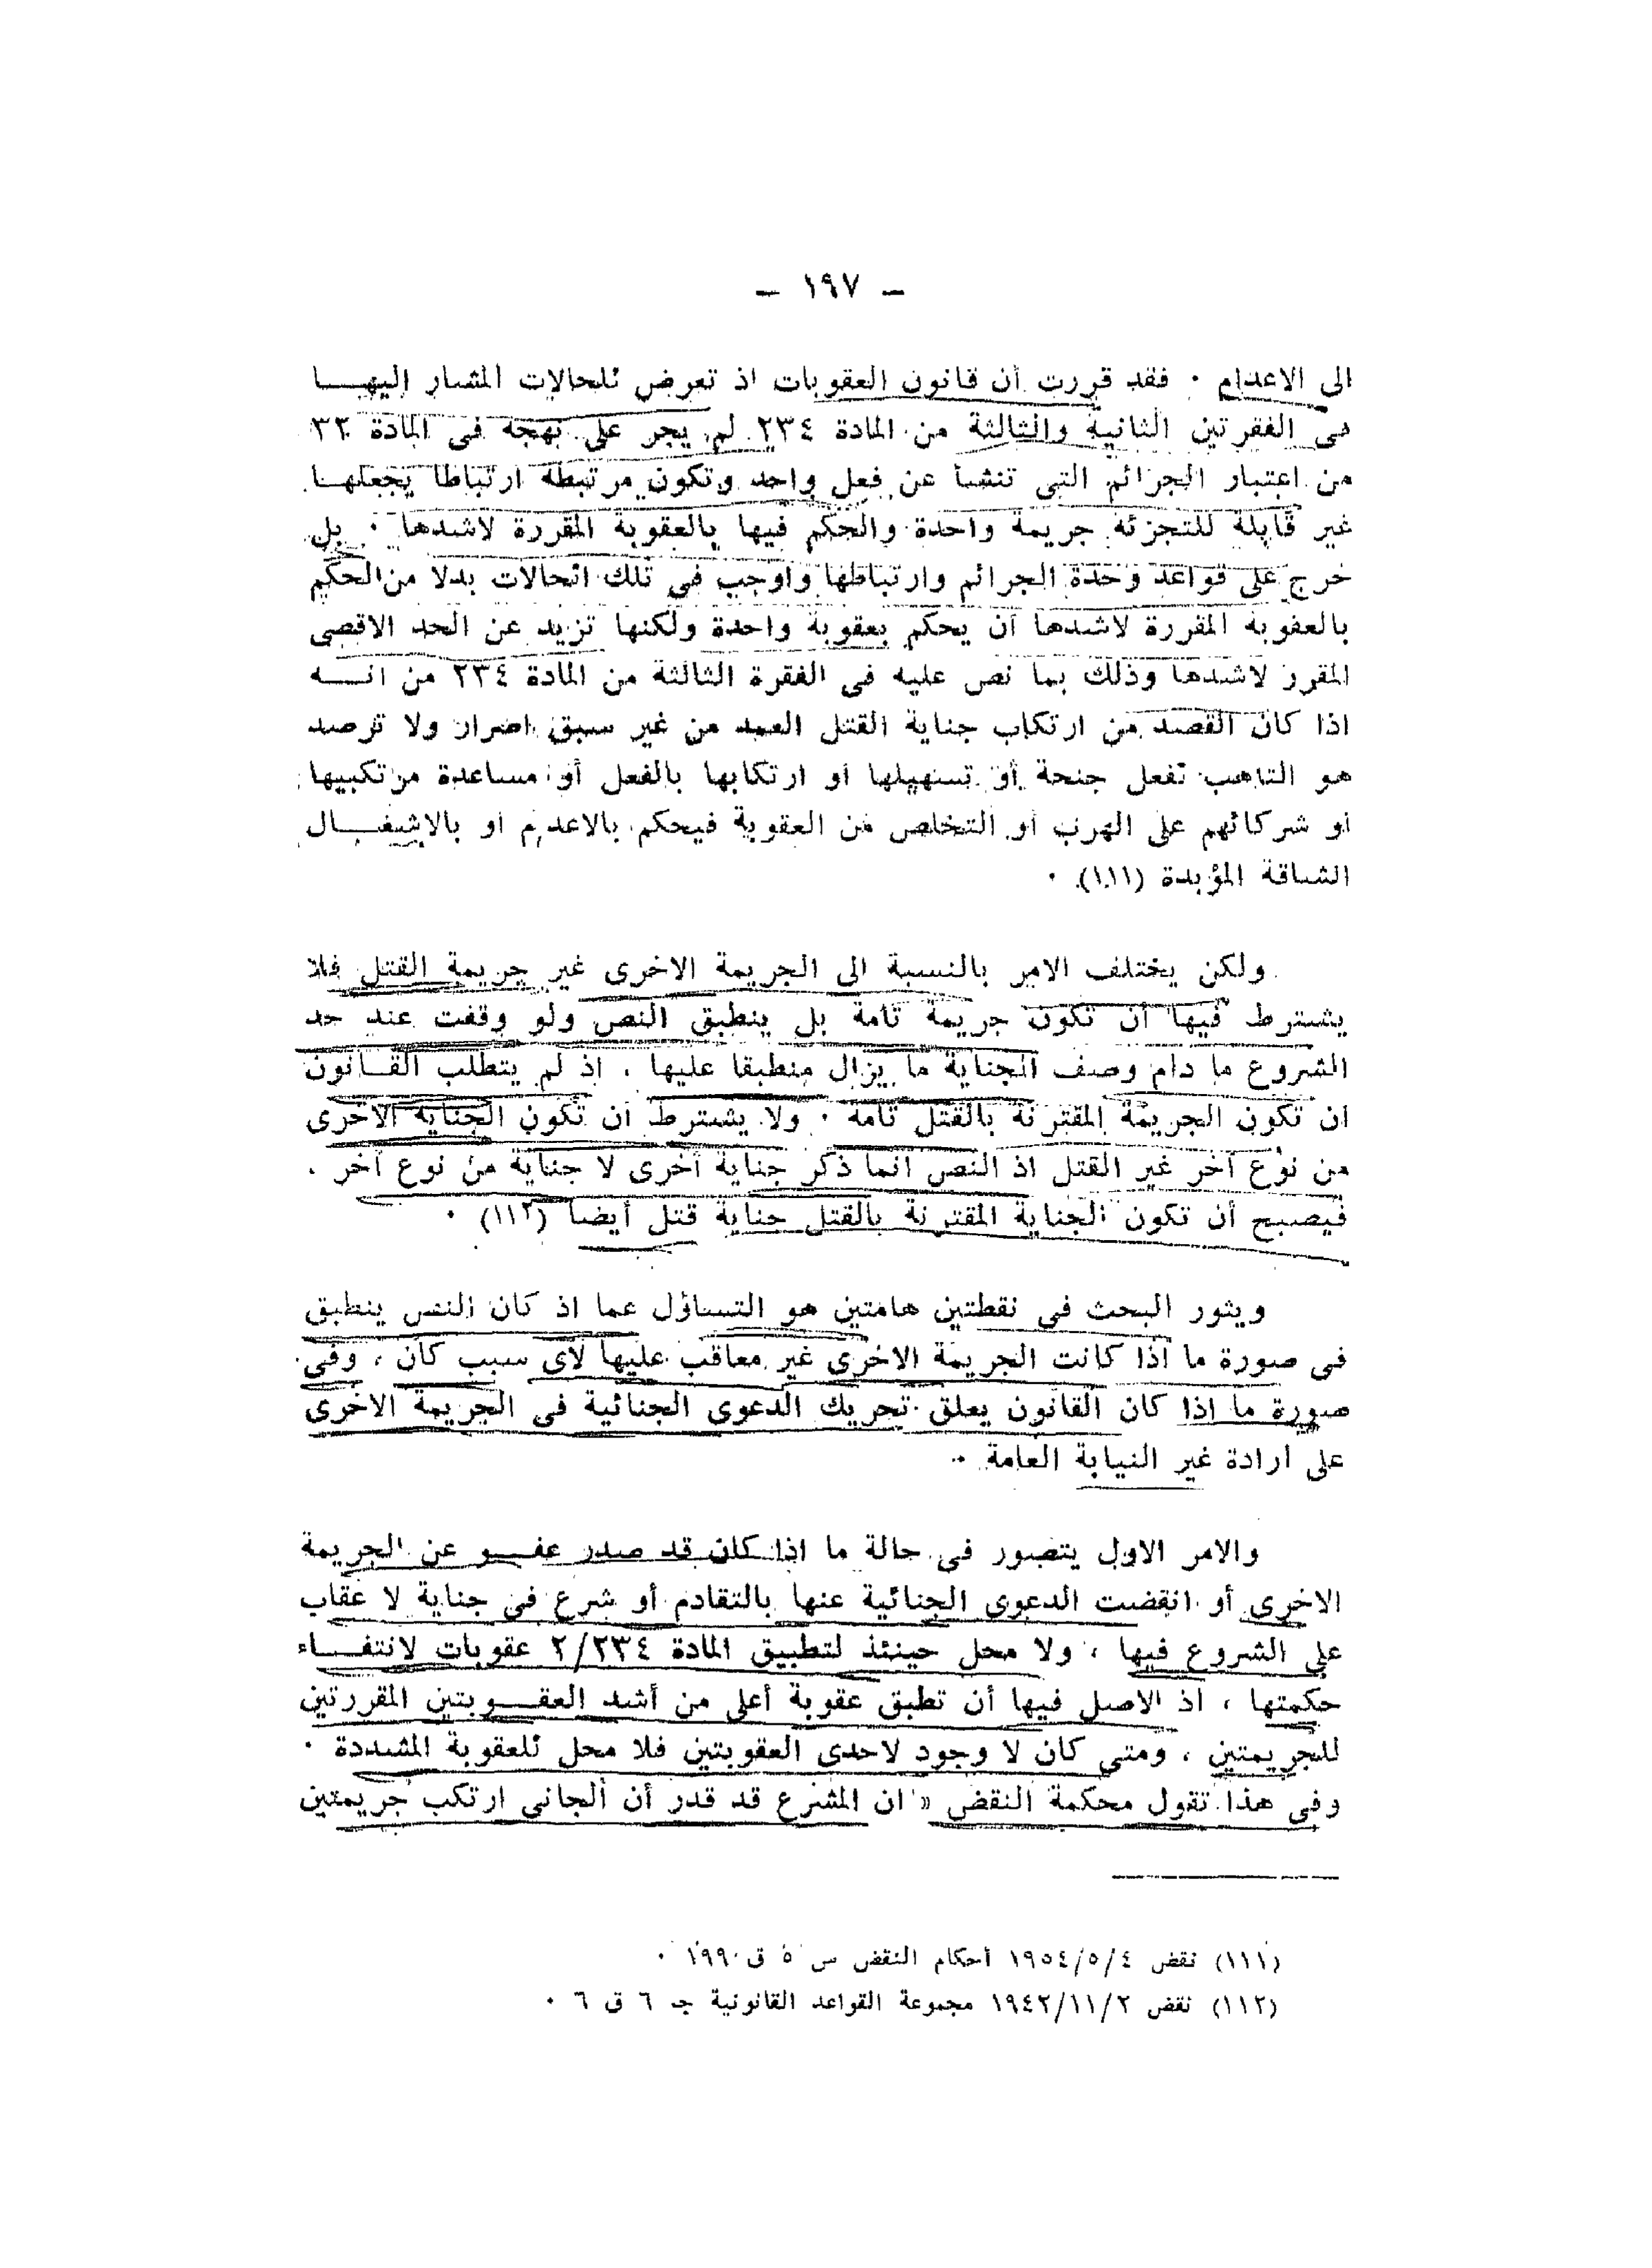 — ١٩٧ —
الى الاعدام . فقد قررت أن قانون العقوبات اذ تعرض للحالات المشار اليهــا
فى الفقرتين الثانية والثالثة من المادة ٢٣٤ لم يجر على نهجه فى المادة ٣٢
من اعتبار الجرائم التى تنشأ عن فعل واحد وتكون مرتبطة ارتباطا يجعلهــا
غير قابلة للتجزئة جريمة واحدة والحكم فيها بالعقوبة المقررة لاشدها . بل
خرج على قواعد وحدة الجرائم وارتباطها وأوجب فى تلك الحالات بدلا من الحكم
بالعقوبة المقررة لاشدها أن يحكم بعقوبة واحدة ولكنها تزيد عن الحد الاقصى
المقرر لاشدها وذلك بما نص عليه فى الفقرة الثالثة من المادة ٢٣٤ من انـــه
اذا كان القصد من ارتكاب جناية القتل العمد من غير سبق اصرار ولا ترصد
هو التأهب لفعل جنحة أو تسهيلها أو ارتكابها بالفعل أو مساعدة مرتكبيها
أو شركائهم على الهرب أو التخلص من العقوبة فيحكم بالاعدام أو بالاشغـــال
الشاقة المؤبدة (١١١) .
ولكن يختلف الامر بالنسبة الى الجريمة الاخرى غير جريمة القتل فلا
يشترط فيها أن تكون جريمة تامة بل ينطبق النص ولو وقفت عند حد
الشروع ما دام وصف الجناية ما يزال منطبقا عليها ، اذ لم يتطلب القــانون
أن تكون الجريمة المقترنة بالقتل تامة . ولا يشترط أن تكون الجناية الاخرى
من نوع آخر غير القتل اذ النص انما ذكر جناية أخرى لا جناية من نوع آخر ،
فيصبح أن تكون الجناية المقترنة بالقتل جناية قتل أيضا (١١٢) .
ويثور البحث فى نقطتين هامتين هو التساؤل عما اذ كان النص ينطبق
فى صورة ما اذا كانت الجريمة الاخرى غير معاقب عليها لأى سبب كان ، وفى
صورة ما اذا كان القانون يعلق تحريك الدعوى الجنائية فى الجريمة الاخرى
على ارادة غير النيابة العامة .
والامر الاول يتصور فى حالة ما اذا كان قد صدر عفــو عن الجريمة
الاخرى أو انقضت الدعوى الجنائية عنها بالتقادم أو شرع فى جناية لا عقاب
على الشروع فيها ، ولا محل حينئذ لتطبيق المادة ٢/٢٣٤ عقوبات لانتفــاء
حكمتها ، اذ الاصل فيها أن تطبق عقوبة أعلى من أشد العقــوبتين المقررتين
للجريمتين ، ومتى كان لا وجود لاحدى العقوبتين فلا محل للعقوبة المشددة .
وفى هذا تقول محكمة النقض « ان المشرع قد قدر أن الجانى ارتكب جريمتين
(١١١) نقض ١٩٥٤/٥/٤ أحكام النقض س ٥ ق ١٩٩٠ .
(١١٢) نقض ١٩٤٢/١١/٢ مجموعة القواعد القانونية جـ ٦ ق ٦ .